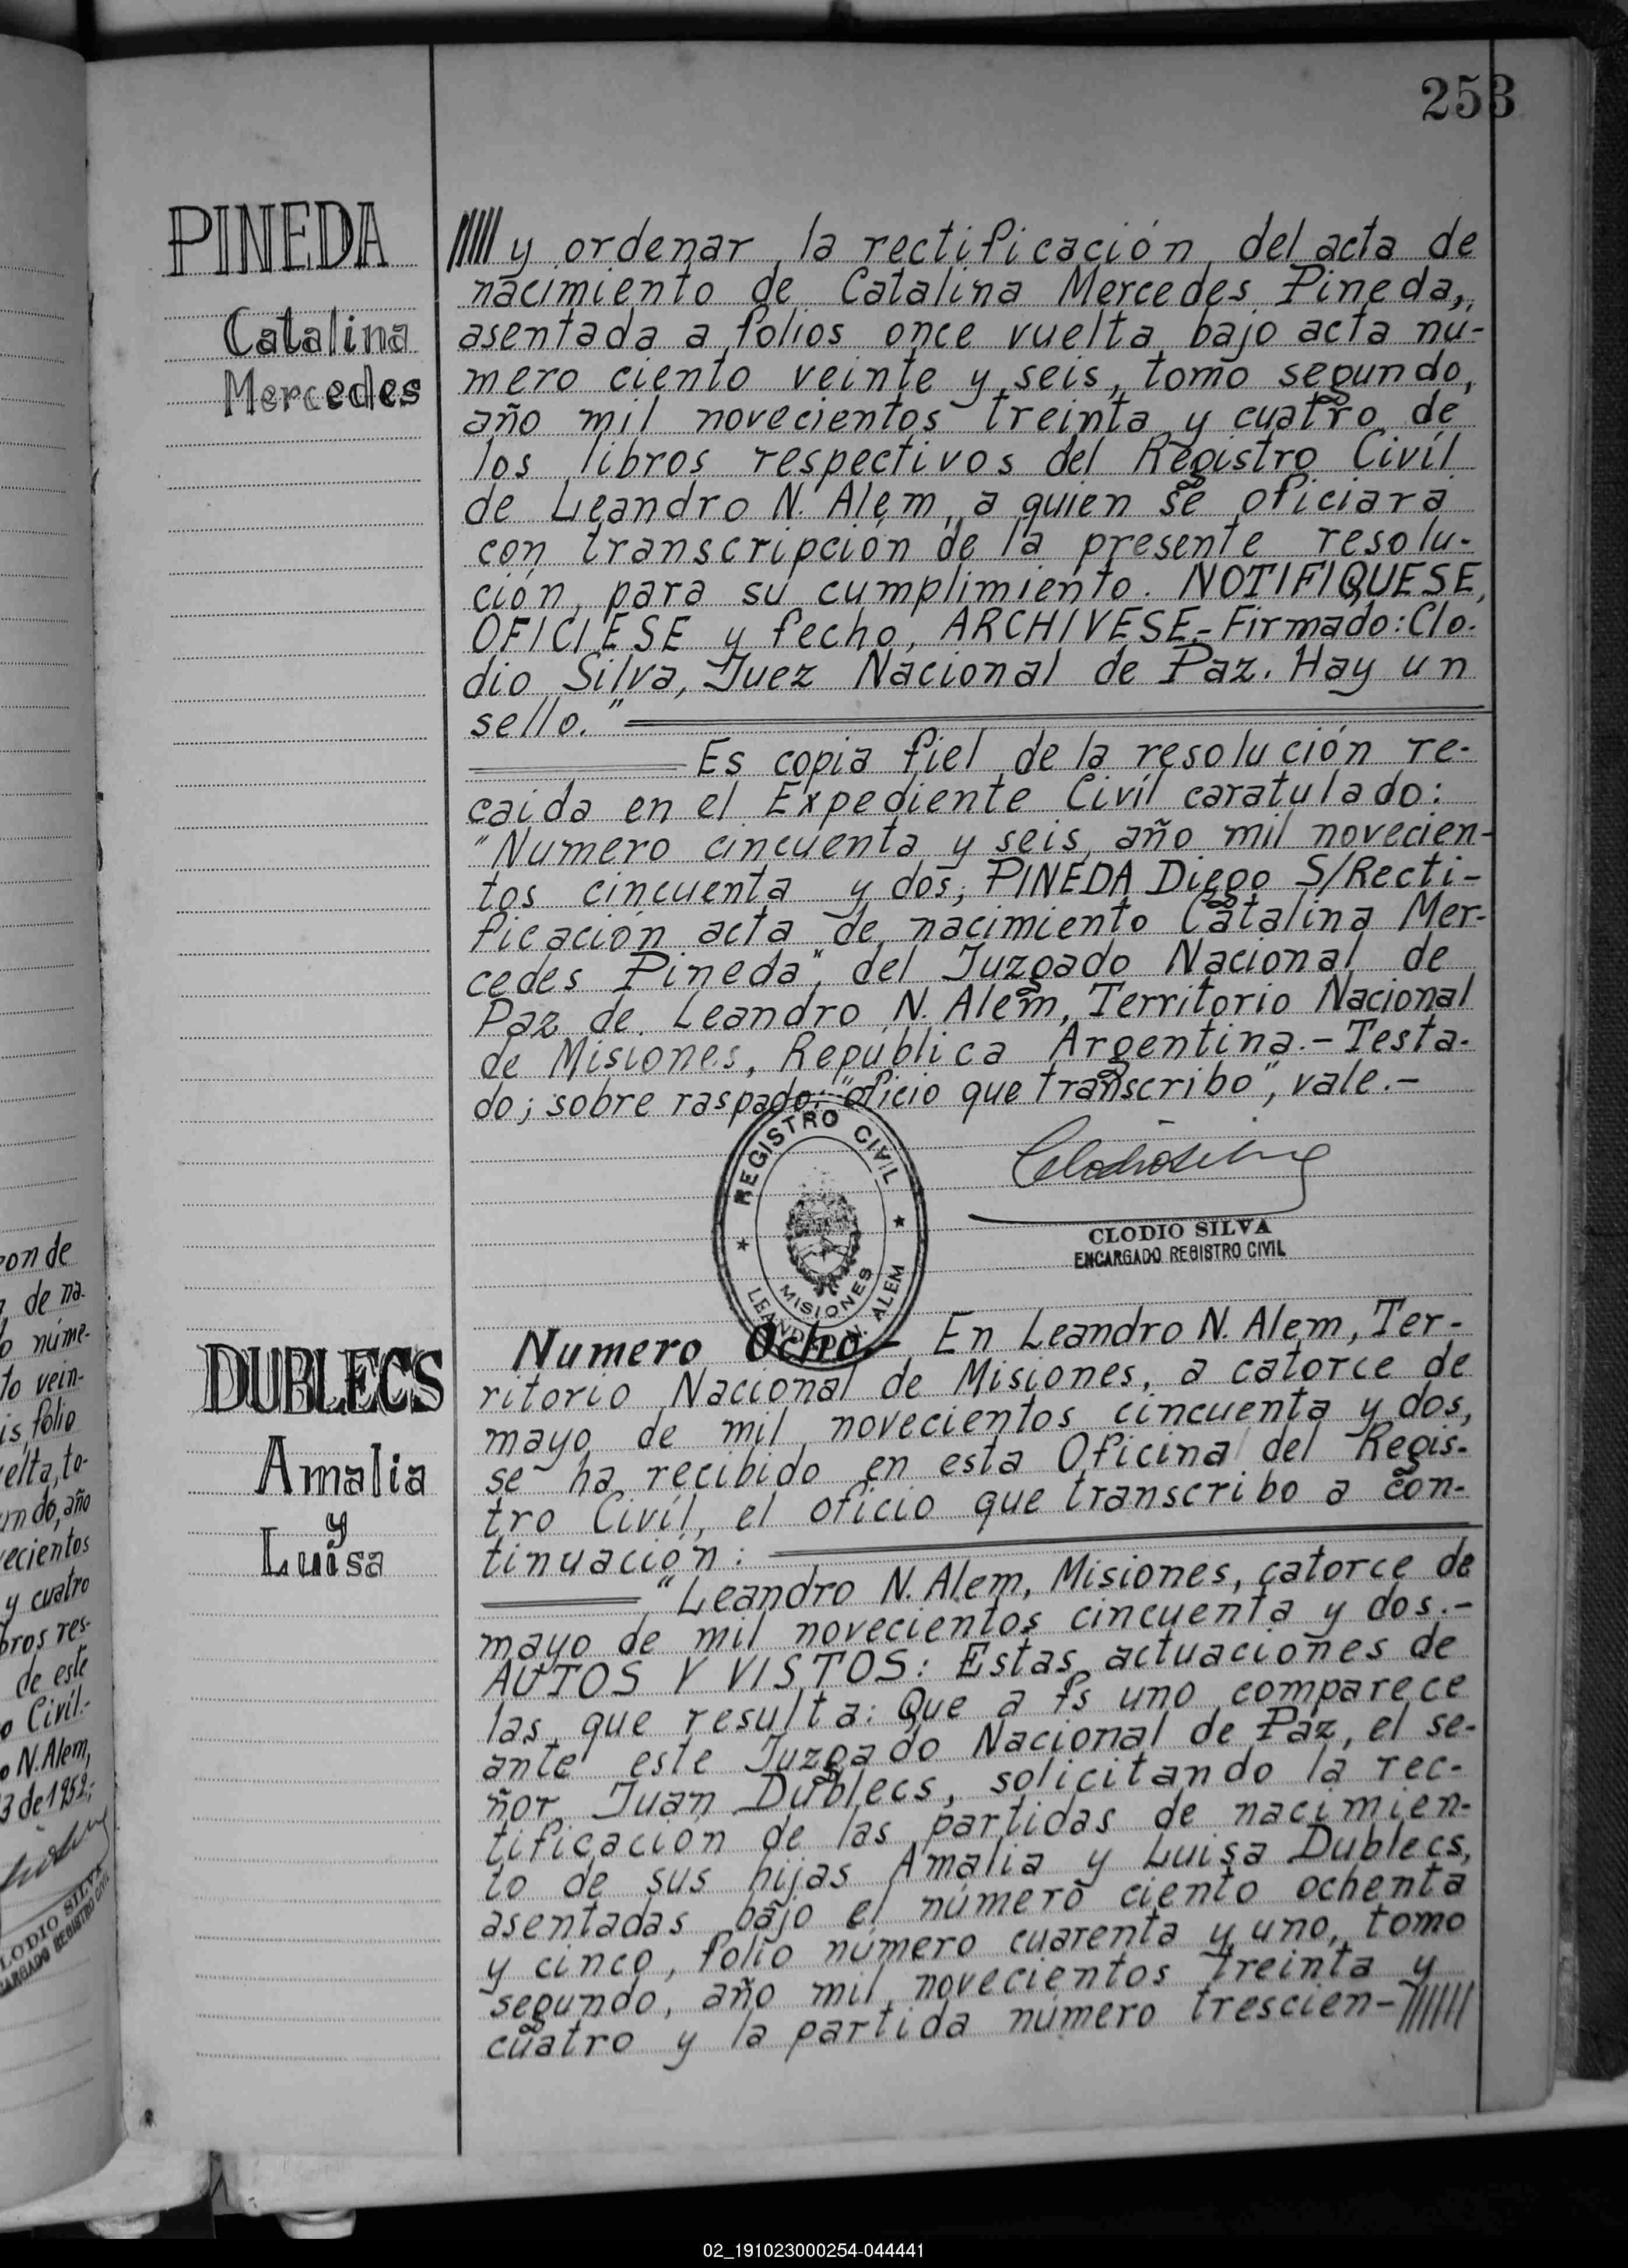 253
PINEDA
Catalina
Mercedes
///// y ordenar la rectificación del acta de
nacimiento de Catalina Mercedes Pineda,
asentada a folios once vuelta bajo acta nú-
mero ciento veinte y seis, tomo segundo,
año mil novecientos treinta y cuatro de
los libros respectivos del Registro Civíl
de Leandro N. Alem, a quien se oficiará
con transcripción de la presente resolu-
ción, para su cumplimiento. NOTIFIQUESE,
OFICIESE y fecho, ARCHIVESE.- Firmado: Clo-
dio Silva, Juez Nacional de Paz. Hay un
sello."
Es copia fiel de la resolución re-
caida en el Expediente Civíl caratulado:
"Numero cincuenta y seis, año mil novecien-
tos cincuenta y dos; PINEDA Diego S/Recti-
ficación acta de nacimiento Catalina Mer-
cedes Pineda", del Juzgado Nacional de
Paz de Leandro N. Alem, Territorio Nacional
de Misiones, República Argentina.- Testa-
do; sobre raspado: "oficio que transcribo", vale.-
REGISTRO CIVIL
MISIONES
LEANDRO N. ALEM
Clodio Silva
CLODIO SILVA
ENCARGADO REGISTRO CIVIL
DUBLECS
Amalia
y
Luisa
Numero Ocho.- En Leandro N. Alem, Ter-
ritorio Nacional de Misiones, a catorce de
mayo de mil novecientos cincuenta y dos,
se ha recibido en esta Oficina del Regis-
tro Civíl, el oficio que transcribo a con-
tinuación:
"Leandro N. Alem, Misiones, catorce de
mayo de mil novecientos cincuenta y dos.-
AUTOS Y VISTOS: Estas actuaciones de
las que resulta: Que a fs uno comparece
ante este Juzgado Nacional de Paz, el se-
ñor Juan Dublecs, solicitando la rec-
tificación de las partidas de nacimien-
to de sus hijas Amalia y Luisa Dublecs,
asentadas bajo el número ciento ochenta
y cinco, folio número cuarenta y uno, tomo
segundo, año mil novecientos treinta y
cuatro y la partida número trescien-//////
on de
de na-
núme-
to vein-
is, folio
elta, to-
undo, año
ecientos
y cuatro
bros res-
de este
o Civíl.-
o N. Alem,
3 de 1952.-
CLODIO SILVA
CARGADO REGISTRO CIVIL
02_191023000254-044441